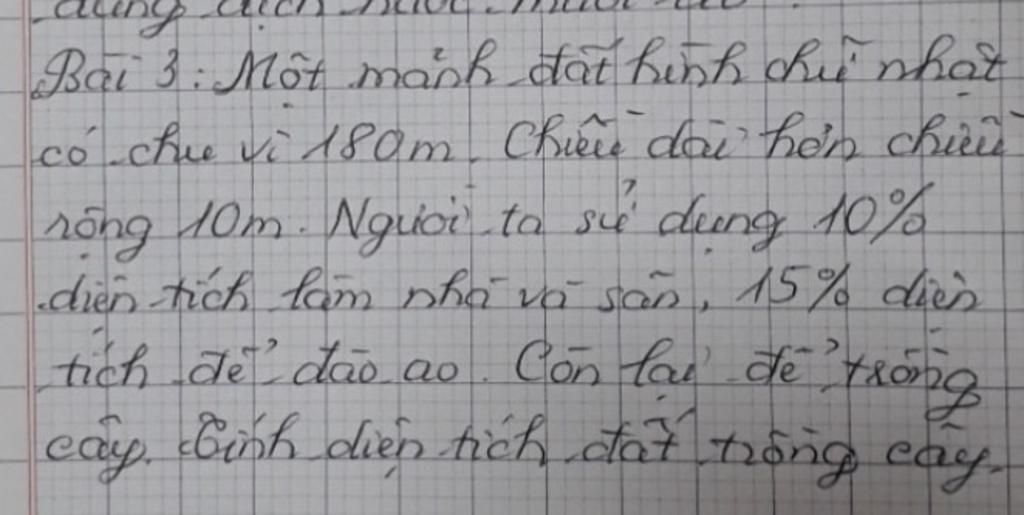 dung dịch nước muối
Bài 3: Một mảnh đất hình chữ nhật
có chu vi 180m. Chiều dài hơn chiều
rộng 10m. Người ta sử dụng 10%
diện tích làm nhà và sân, 15% diện
tích để đào ao. Còn lại để trồng
cây. Tính diện tích đất trồng cây.